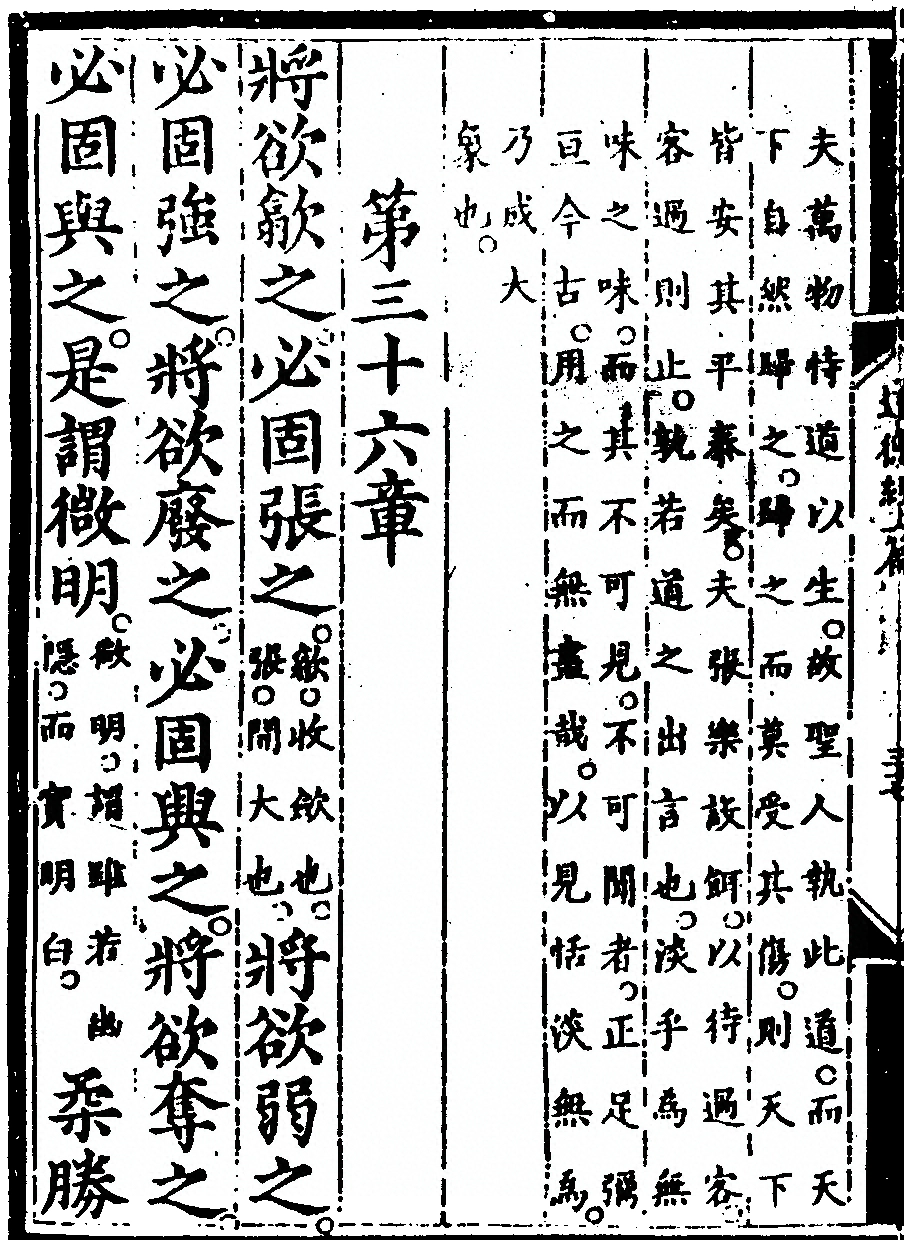 夫萬物恃道以生。故聖人執此道。而天
下自然歸之。歸之而莫受其傷。則天下
皆安其平泰矣。夫張樂設餌。以待過客
客過則止。孰若道之出言也。淡乎為無
味之味。而其不可見。不可聞者。正足彌
亘今古。用之而無盡哉。以見恬淡無為。
乃成大
象也。
第三十六章
將欲歙之必固張之。歙。收斂也。張。開大也。將欲弱之。
必固強之。將欲廢之。必固興之。將欲奪之。
必固與之。是謂微明。微明。謂雖若幽隱。而實明白。柔勝